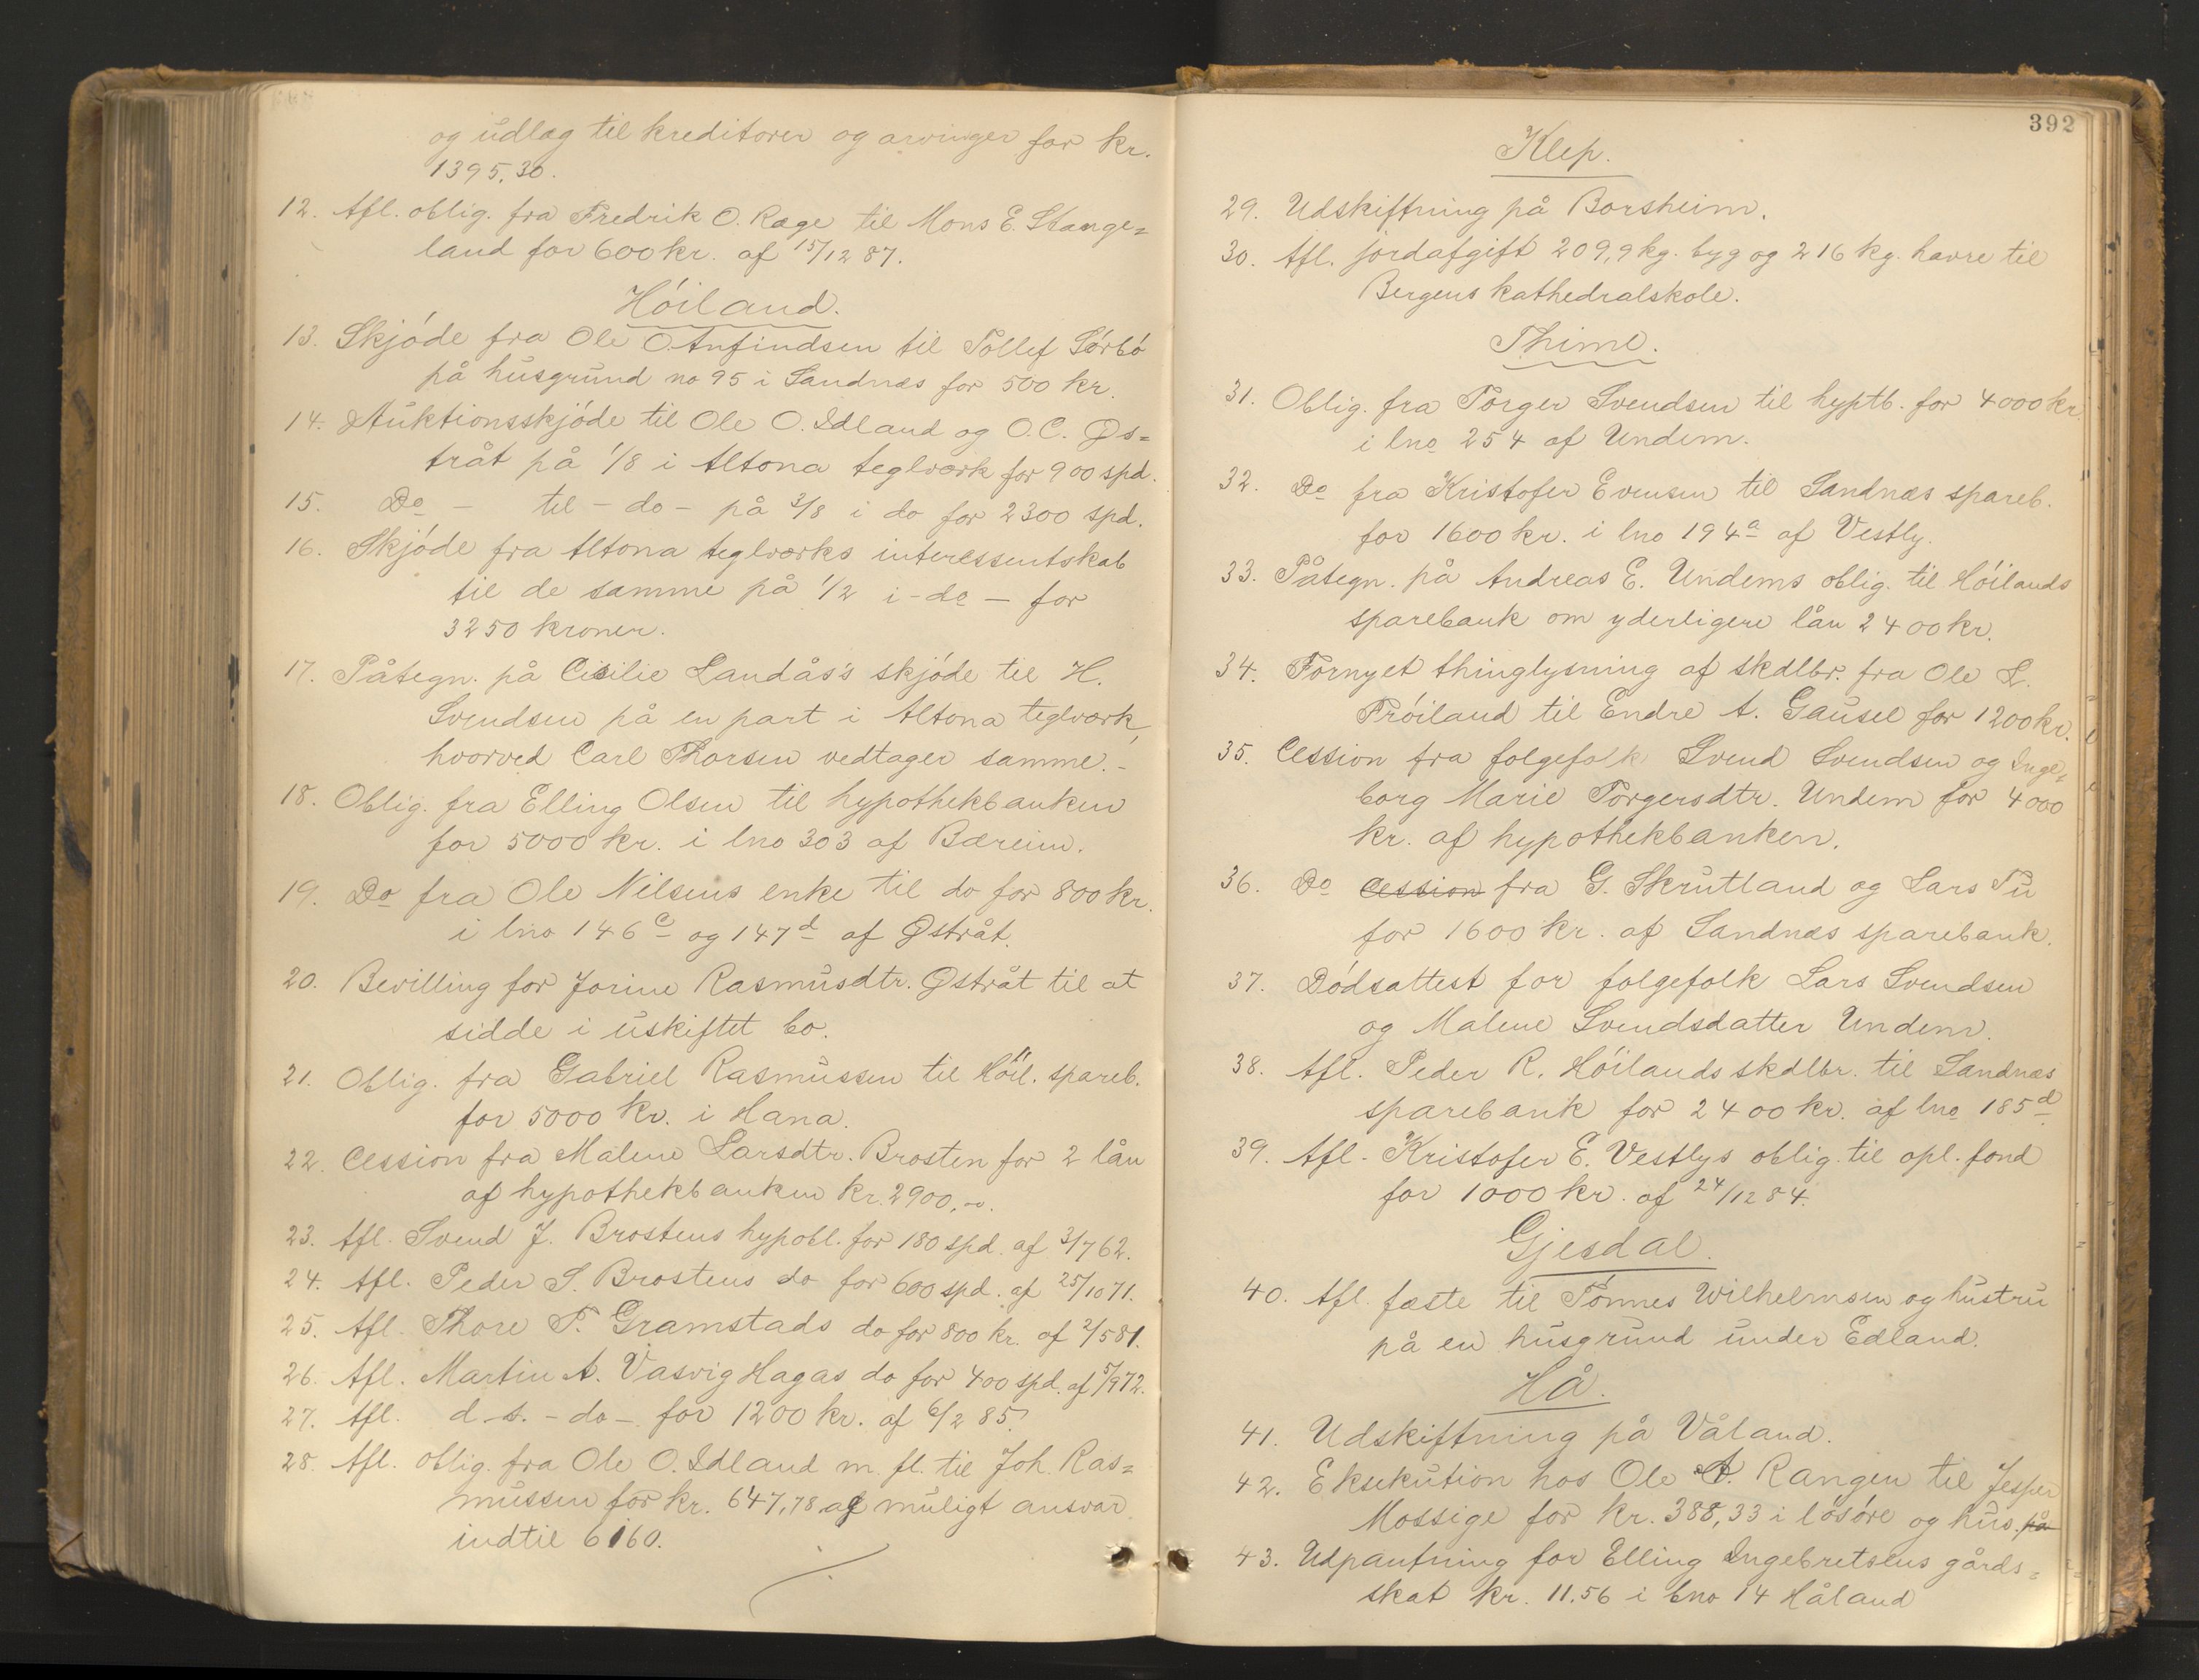 og udlæg til kreditorer og arvinger for kr.
1395,30.
12. Afl. oblig. fra Fredrik O. Rage til Mons E. Stange=
land for 600 kr. af 15/12 87.
Hóiland.
13. Skjóde fra Ole O. Anfindsen til Tollef Sórbó
på husgrund no 95 i Sandnæs for 500 kr.
14. Auktionsskjóde til Ole O. Idland og O. C. Øs=
tråt på 1/8 i Altona teglværk for 900 spd.
15. Do - til - do - på 3/8 i do for 2300 spd.
16. Skjóde fra Altona teglværks interessentskab
til de samme på 1/2 i - do - for
3250 kroner.
17. Påtegn. på Cicilie Landås's skjóde til H.
Svendsen på en part i Altona teglværk,
hvorved Carl Thorsen vedtager samme. -
18. Oblig. fra Elling Olsen til hypothekbanken
for 5000 kr. i lno 303 af Bæreim.
19. Do fra Ole Nilsens enke til do for 800 kr.
i lno 146 c og 147 d af Østråt.
20. Bevilling for Jorine Rasmusdtr. Østråt til at
sidde i uskiftet bo.
21. Oblig. fra Gabriel Rasmussen til Hóil. spareb.
for 5000 kr. i Hana.
22. Cession fra Malene Larsdtr. Brosten for 2 lån
af hypothekbanken kr. 2900,-.
23. Afl. Svend J. Brostens hypobl. for 180 spd. af 3/7 62.
24. Afl. Peder S. Brostens do for 600 spd. af 25/10 71.
25. Afl. Thore T. Gramstads do for 800 kr. af 2/5 81.
26. Afl. Martin A. Vasvig Hagas do for 400 spd. af 5/9 72.
27. Afl. d. s. - do - for 1200 kr. af 6/2 85.
28. Afl. oblig. fra Ole O. Idland m. fl. til Joh. Ras=
mussen for kr. 647,78 af muligt ansvar
indtil 6160.
392
Klep.
29. Udskiftning på Borsheim.
30. Afl. jordafgift 209,9 kg. byg og 216 kg. havre til
Bergens kathedralskole.
Thime.
31. Oblig. fra Torger Svendsen til hyptb. for 4000 kr
i lno 254 af Undem.
32. Do fra Kristofer Evensen til Sandnæs spareb.
for 1600 kr. i lno 194 a af Vestly.
33. Påtegn. på Andreas E. Undems oblig. til Hóilands
sparebank om yderligere lån 2400 kr.
34. Fornyet thinglysning af skdlbr. fra Ole L.
Fróiland til Endre A. Gausel for 1200 kr.
35. Cession fra folgefolk Svend Svendsen og Inge=
borg Marie Torgersdtr. Undem for 4000
kr. af hypothekbanken.
36. Do Cession fra G. Skrutland og Lars Tu
for 1600 kr. af Sandnæs sparebank.
37. Dódsattest for folgefolk Lars Svendsen
og Malene Svendsdatter Undem.
38. Afl. Peder R. Hóilands skdlbr. til Sandnæs
sparebank for 2400 kr. af lno 185 d
39. Afl. Kristofer E. Vestlys oblig. til opl. fond
for 1000 kr. af 24/12 84.
Gjesdal.
40. Afl. fæste til Tónnes Wilhelmsen og hustru
på en husgrund under Edland.
Hå.
41. Udskiftning på Våland.
42. Eksekution hos Ole A. Rangen til Jesper
Mossige for kr. 388,33 i lósóre og hus. på
43. Udpantning for Elling Ingebretsens gårds=
skat kr. 11.56 i bno 14 Håland